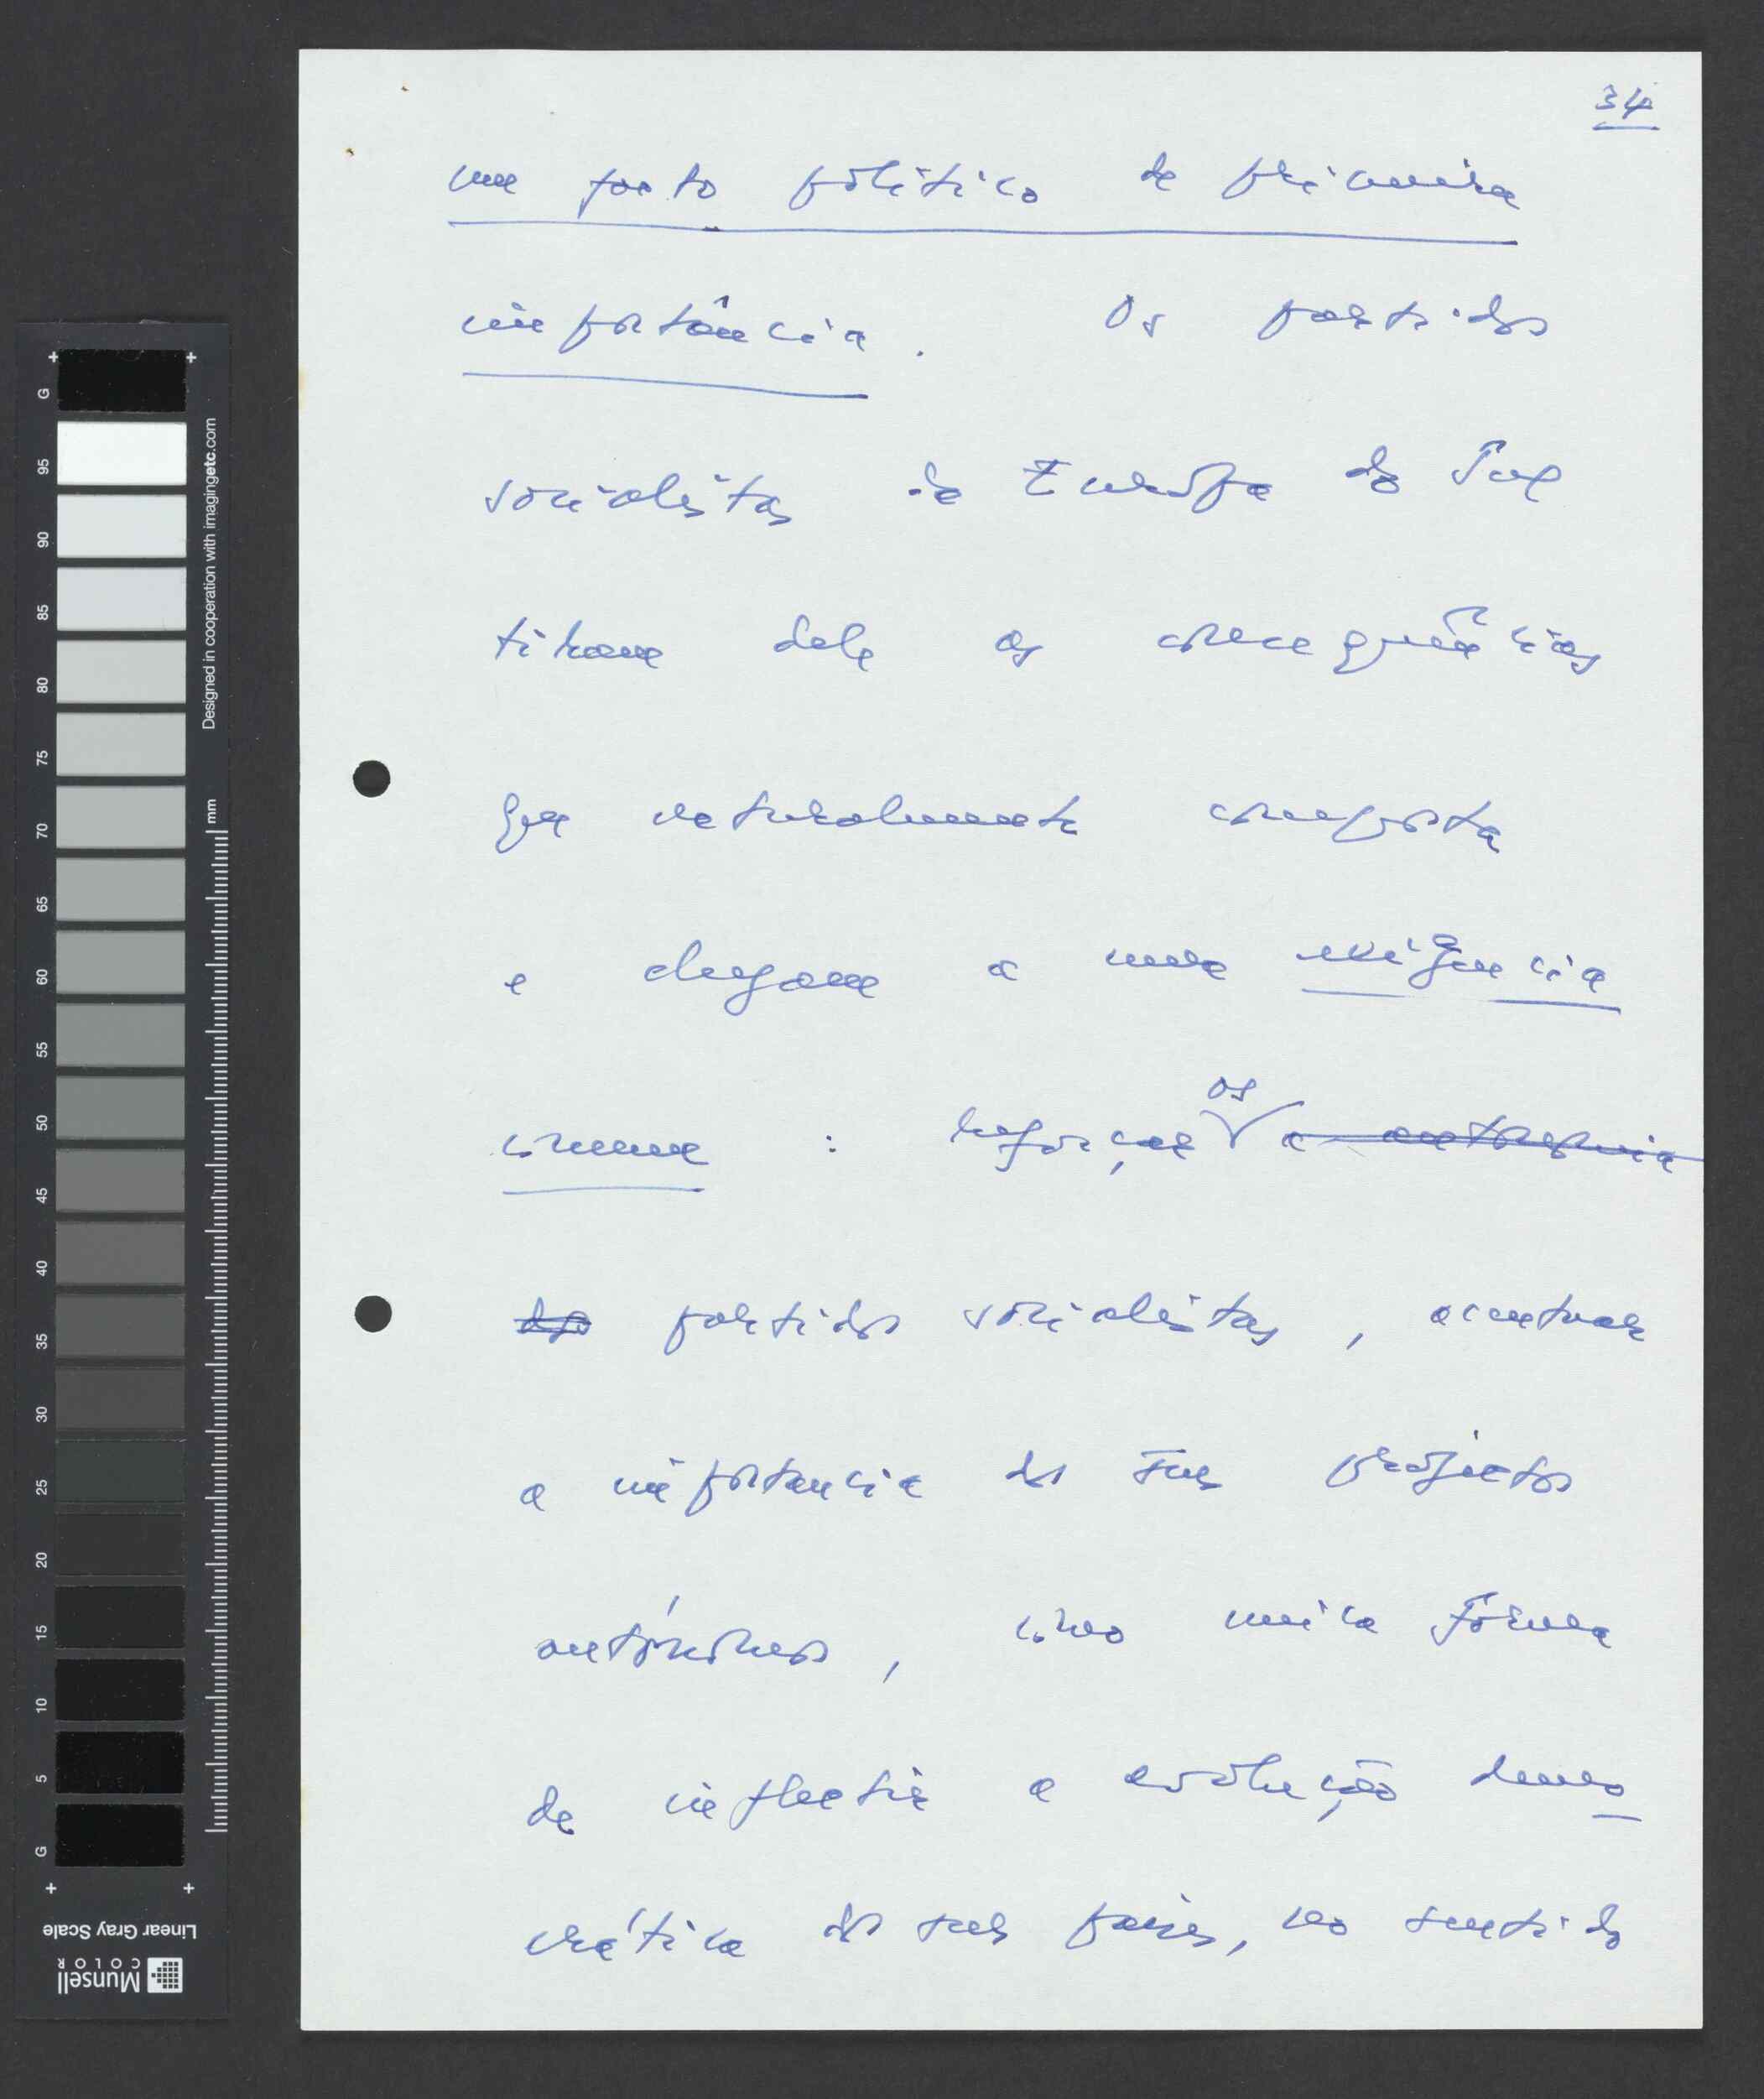 34
um facto político de primeira
importância. Os partidos
socialistas da Europa do Sul
tiram dele as consequências
que naturalmente comporta
e chegam a uma exigência
comum : reforçar os a autonomia
dos partidos socialistas, acentuar
a importancia dos seus projectos
autónomos, como única fórmula
de inflectir a evolução demo
crática dos seus países, no sentido
G
95
90
85
80
75
70
65
60
55
50
45
40
35
30
25
20
15
10
5
G
Designed in cooperation with imagingetc.com
mm
Linear Gray Scale
Munsell
COLOR